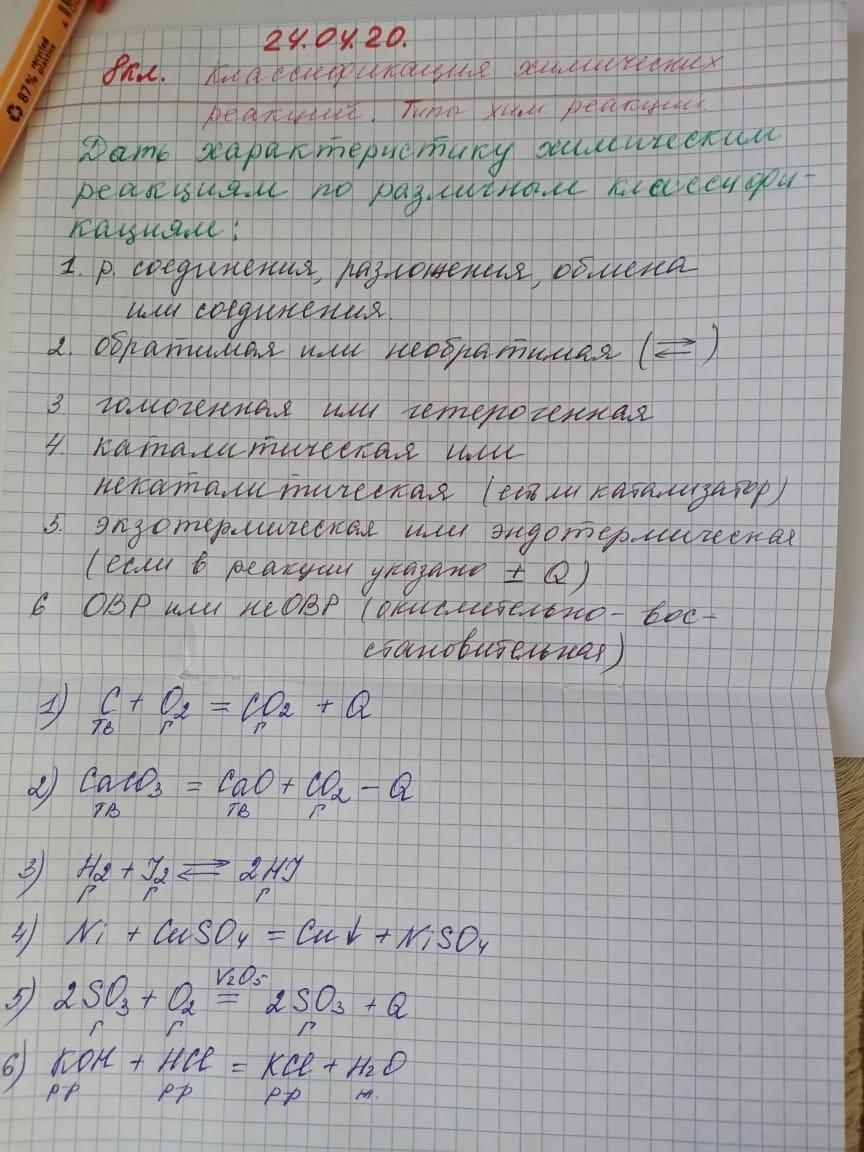 87% recycled plastics
24.04.20.
8кл. Классификация химических
реакций. Типы хим реакций.
Дать характеристику химическим
реакциям по различным классифи-
кациям:
1. р. соединения, разложения, обмена
или соединения.
2. обратимая или необратимая (⇄)
3 гомогенная или гетерогенная
4. каталитическая или
некаталитическая (есть ли катализатор)
5. экзотермическая или эндотермическая
(если в реакции указано ± Q)
6 ОВР или неОВР (окислительно-вос-
становительная)
1) C + O2 = CO2 + Q
тв г г
2) CaCO3 = CaO + CO2 - Q
тв тв г
3) H2 + J2 ⇄ 2HJ
г г г
4) Ni + CuSO4 = Cu↓ + NiSO4
V2O5
5) 2SO3 + O2 = 2SO3 + Q
г г г
6) KOH + HCl = KCl + H2O
р-р р-р р-р ж.